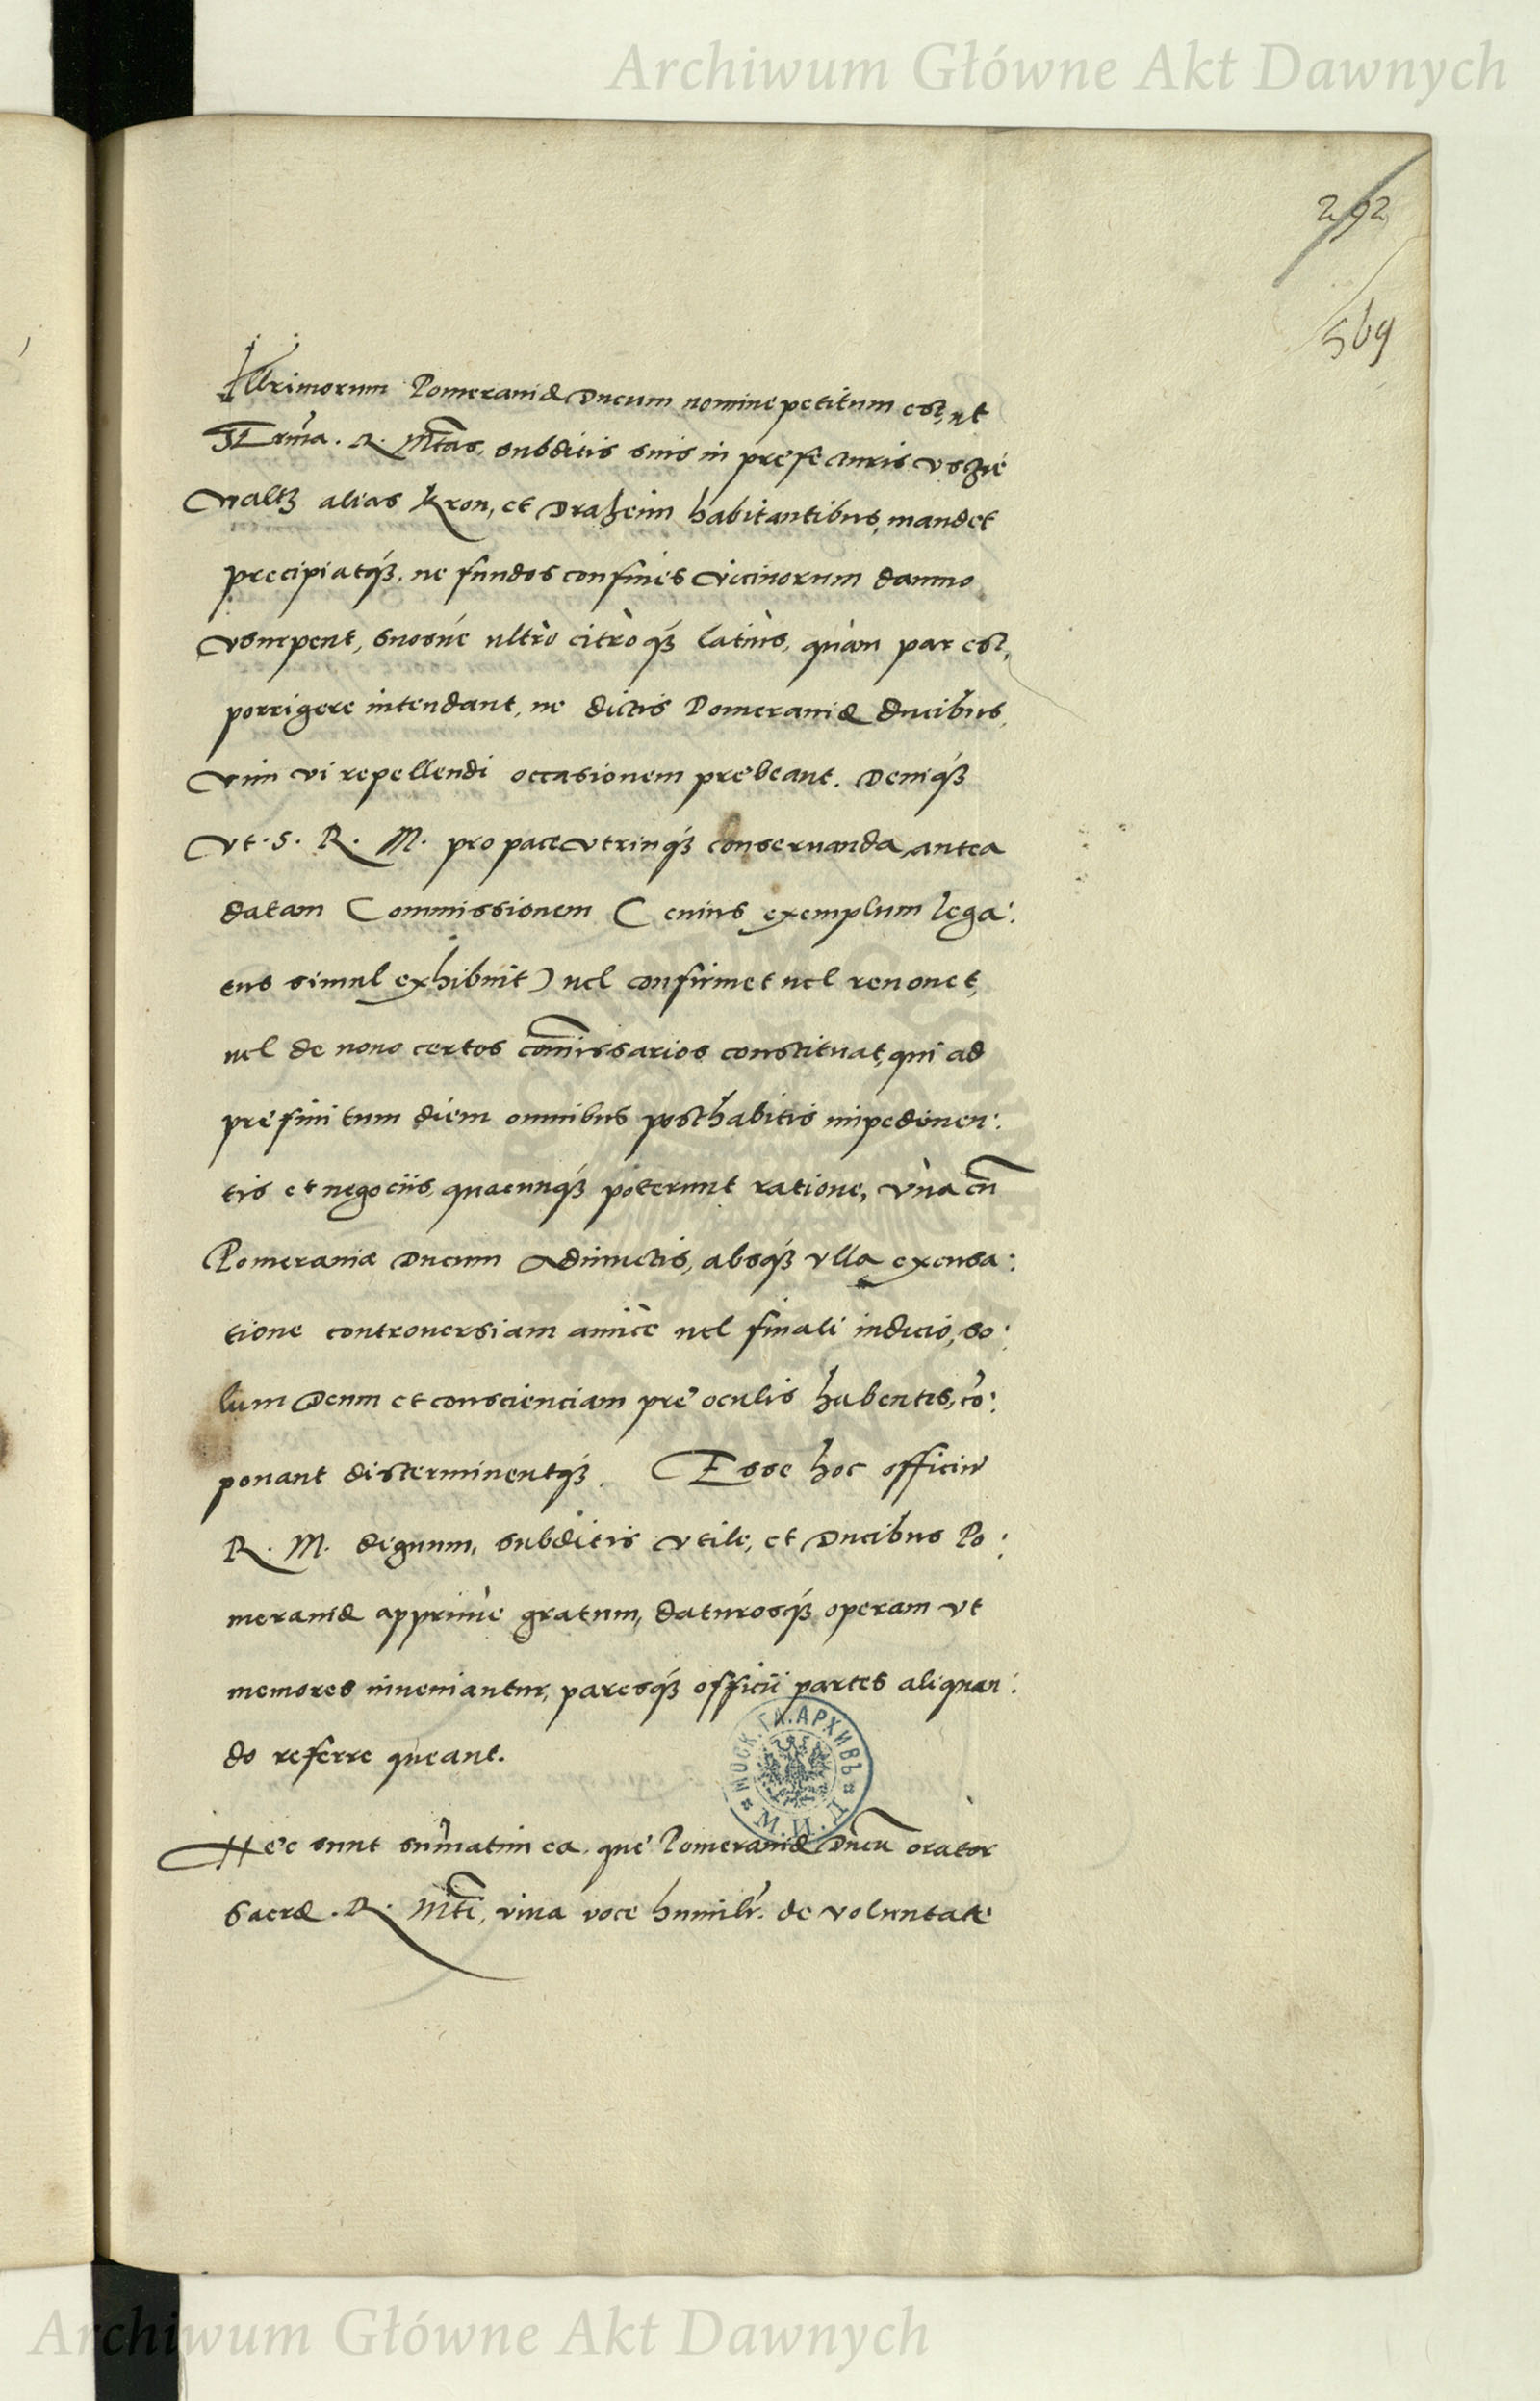 Archiwum Główne Akt Dawnych
292
569
Illrimorum Pomeraniæ Ducum nomine petitum est, ut
Sermã. R. Mtas. subditis suis in prefecturis Uszie
Waltz alias Kron, et Draheim habitantibus, mandet
precipiatq́ꝫ, ne fundos confines vicinorum damno
vsurpent, suosúe ultrò citròq́ꝫ latius, quàm par est,
porrigere intendant, ne dictis Pomeraniæ ducibus,
Vim vi repellendi occasionem prebeant. Deniq́ꝫ
Vt. S. R. M. pro pace vtrinq́ꝫ conseruanda, antea
datam Commissionem (cuius exemplum lega:
tus simul exhibuit) uel confirmet uel renouet,
uel de nouo certos com̃issarios constituat, qui ad
prefinitum diem omnibus posthabitis impedimen:
tis et negociis, quacunq́ꝫ poterunt ratione, vnà cũ
Pomeraniæ Ducum Adiunctis, absq́ꝫ vlla excusa:
tione controuersiam amicè uel finali iudicio, so:
lum Deum et conscienciam pre oculis habentes, cõ:
ponant disterminentq́ꝫ. Esse hoc officiũ
R. M. dignum, subditis vtile, et Ducibus Po:
meraniæ apprimè gratum, daturosq́ꝫ operam vt
memores inueniantur, paresq́ꝫ officii partes aliquan:
do referre queant.
МОСК. ГЛ. АРХИВЪ М. И. Д.
Hec sunt sum̃atim ea, que Pomeraniæ Ducũ orator
Sacræ. R. Mti, viua voce humilr̃. de voluntate
Archiwum Główne Akt Dawnych